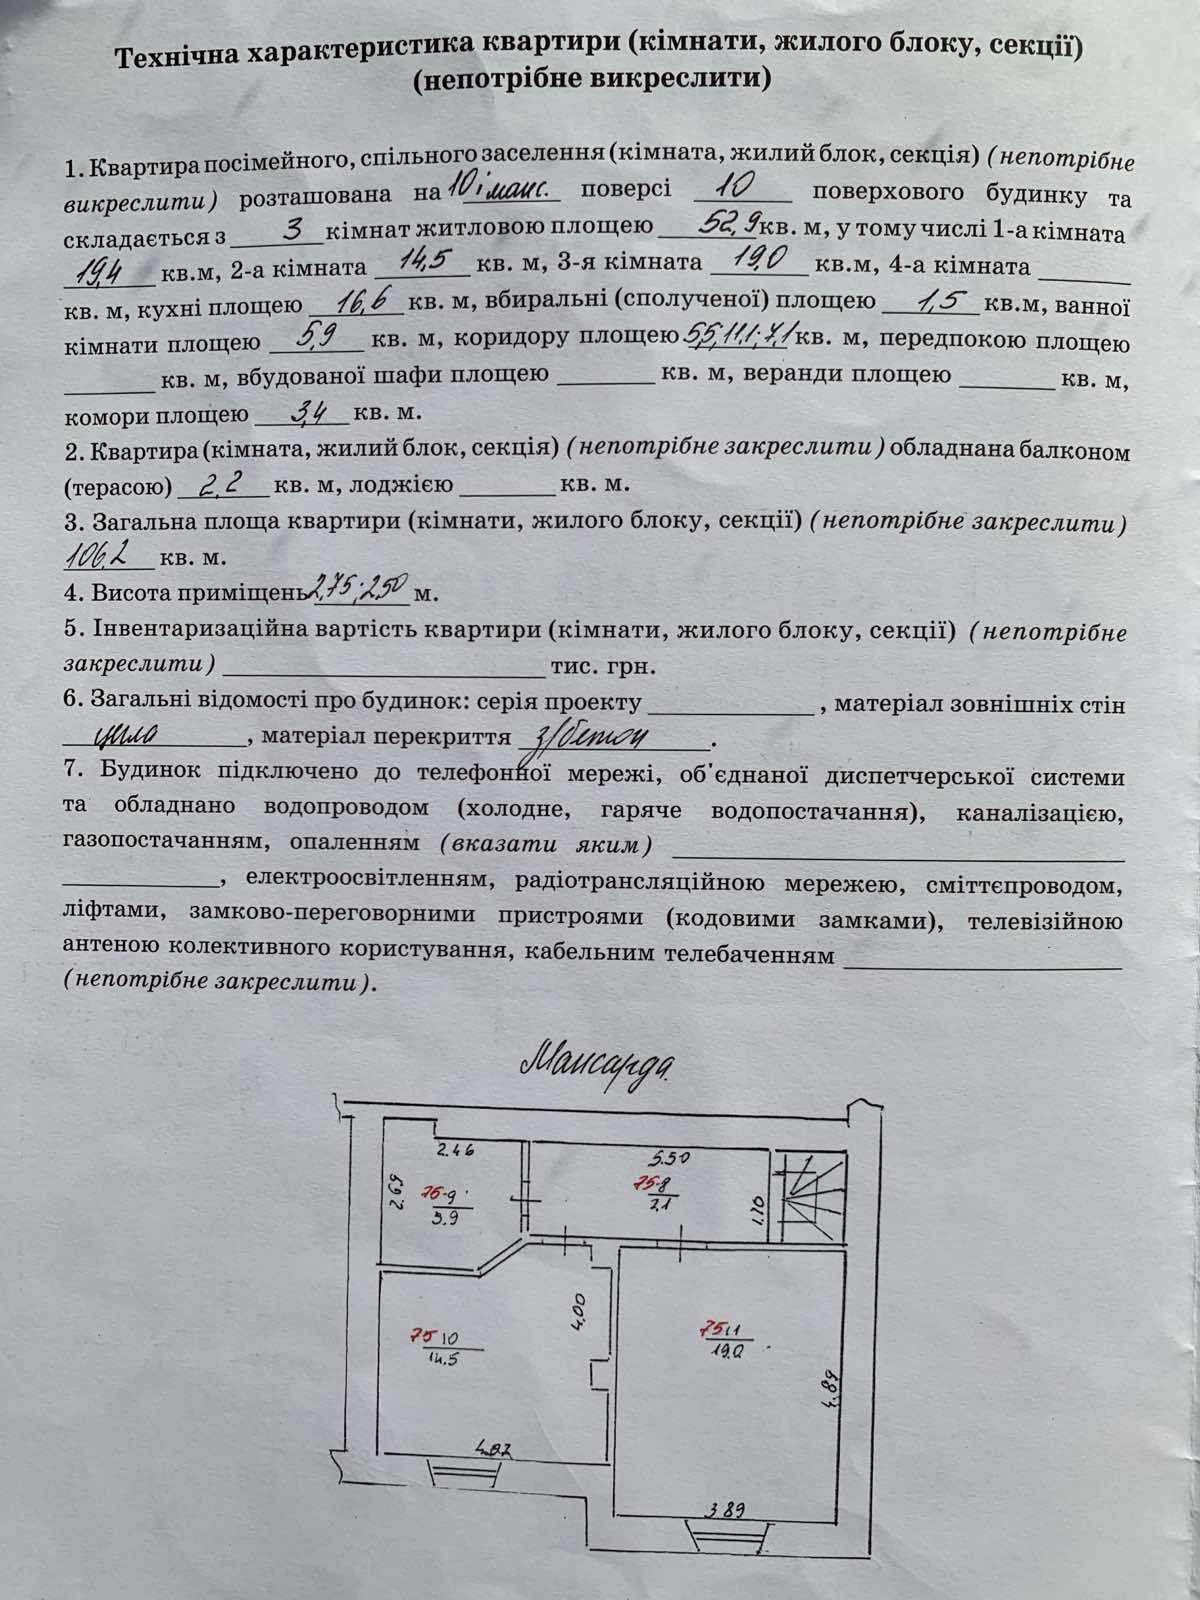 Технічна характеристика квартири (кімнати, жилого блоку, секції)
(непотрібне викреслити)
1. Квартира посімейного, спільного заселення (кімната, жилий блок, секція) (непотрібне
викреслити) розташована на 10 і манс. поверсі 10 поверхового будинку та
складається з 3 кімнат житловою площею 52,9 кв. м, у тому числі 1-а кімната
19,4 кв.м, 2-а кімната 14,5 кв. м, 3-я кімната 19,0 кв.м, 4-а кімната
кв. м, кухні площею 16,6 кв. м, вбиральні (сполученої) площею 1,5 кв.м, ванної
кімнати площею 5,9 кв. м, коридору площею 5,5; 11,1; 7,1 кв. м, передпокою площею
кв. м, вбудованої шафи площею кв. м, веранди площею кв. м,
комори площею 3,4 кв. м.
2. Квартира (кімната, жилий блок, секція) (непотрібне закреслити) обладнана балконом
(терасою) 2,2 кв. м, лоджією кв. м.
3. Загальна площа квартири (кімнати, жилого блоку, секції) (непотрібне закреслити)
106,2 кв. м.
4. Висота приміщень 2,75; 2,50 м.
5. Інвентаризаційна вартість квартири (кімнати, жилого блоку, секції) (непотрібне
закреслити) тис. грн.
6. Загальні відомості про будинок: серія проекту , матеріал зовнішніх стін
цегла , матеріал перекриття з/бетон .
7. Будинок підключено до телефонної мережі, об'єднаної диспетчерської системи
та обладнано водопроводом (холодне, гаряче водопостачання), каналізацією,
газопостачанням, опаленням (вказати яким)
, електроосвітленням, радіотрансляційною мережею, сміттєпроводом,
ліфтами, замково-переговорними пристроями (кодовими замками), телевізійною
антеною колективного користування, кабельним телебаченням
(непотрібне закреслити).
Мансарда
2.46
5.50
2.69
75-9
5.9
75-8
7.1
1.20
4.00
75 10
14.5
75 11
19.0
4.89
4.02
3.89